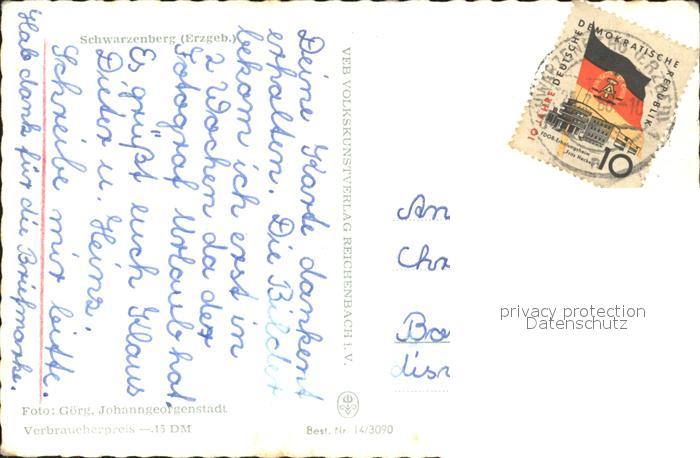 Schwarzenberg (Erzgeb.)
Deine Karte dankend
erhalten. Die Bilder
bekom ich erst in
2 Wochen da der
Fotograf Urlaub hat.
Es grüßt euch Klaus
Dieter u. Heinz.
Schreibe mir bitte.
Hab dank für die Briefmarke.
Foto: Görg, Johanngeorgenstadt
Verbraucherpreis —.15 DM
VEB VOLKSKUNSTVERLAG REICHENBACH i. V.
Best. Nr. 14/3090
10 JAHRE DEUTSCHE DEMOKRATISCHE REPUBLIK
FDGB-Erholungsheim
„Fritz Heckert“
10
An
Chr
Bæ
disn
privacy protection
Datenschutz